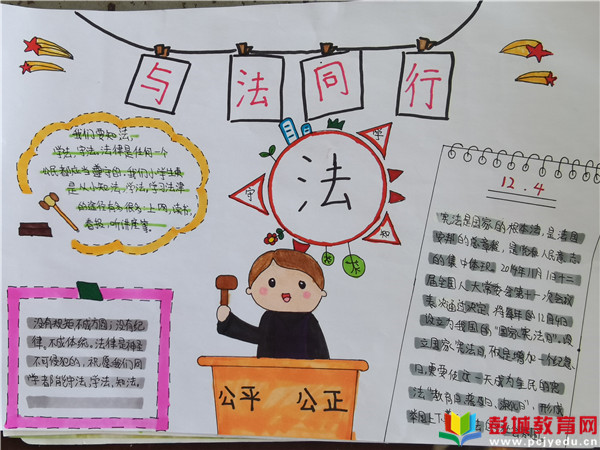 与法同行
我们要知法,
学法,守法,法律是任何一个
公民都应当遵守的,我们小学生更
是从小知法,学法,学习法律
的途径有多很多:上网,读书,
看报,听讲座等。
学
守
知
法
12.4
宪法是国家的根本法,是治国
安邦的总章程,是党和人民意志
的集中体现。2014年11月1日十二
届全国人大常委会第十一次会议
表决通过决定,将每年的12月4日
设立为我国的"国家宪法日"。设
立国家宪法日,不仅是增加一个纪念
日,更要使这一天成为全民的宪
法"教育
形成
没有规矩不成方圆;没有纪
律,不成体统。法律是神圣
不可侵犯的,祝愿我们同
学都能守法,学法,知法。
公平 公正
彭城教育网
www.pcjyedu.cn